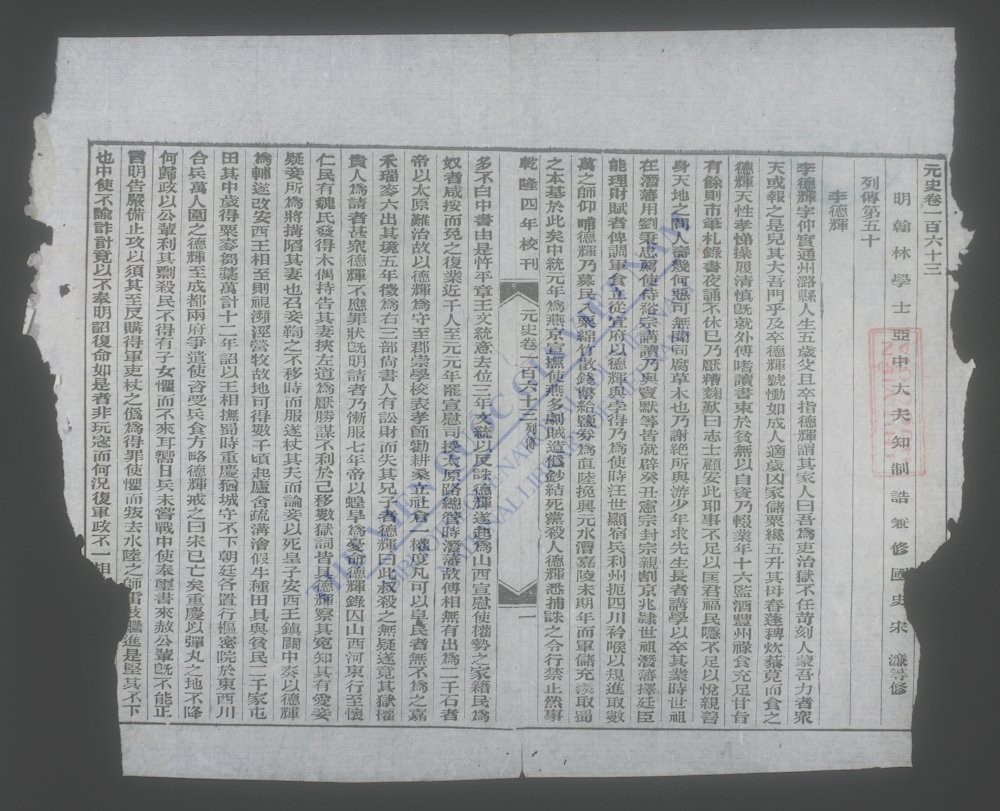 元史卷一百六十三
明翰林學士亞中大夫知制誥兼修國史宋濂等修
列傳第五十
李德輝
李德輝字仲實通州潞縣人生五歲父且卒指德輝謂其家人曰吾爲吏治獄不任苛刻人蒙吾力者衆
天或報之是兒其大吾門乎及卒德輝號慟如成人適歲凶家儲粟纔五升其母舂蓬稗炊藜莧而食之
德輝天性孝悌操履清慎既就外傅嗜讀書束於貧無以自資乃輟業年十六監酒豐州祿食充足甘旨
有餘則市筆札錄書夜誦不休已乃厭糟麴歎曰志士顧安此耶事不足以匡君福民隱不足以悅親善
身天地之間人壽幾何惡可無聞同腐草木也乃謝絕所與游少年求先生長者講學以卒其業時世祖
在潛藩用劉秉忠薦使侍裕宗講讀乃與竇默等皆就辟癸丑憲宗封宗親割京兆隸世祖潛藩擇廷臣
能理財賦者俾調軍食立從宜府以德輝與孛得乃爲使時汪世顯宿兵利州扼四川衿喉以規進取數
萬之師仰哺德輝乃募民入粟綿竹散錢幣給鹽券爲直陸挽興元水漕嘉陵未期年而軍儲充羨取蜀
之本基於此矣中統元年爲燕京宣撫使燕多劇賊造僞鈔結死黨殺人德輝悉捕誅之令行禁止然事
乾隆四年校刊
元史卷一百六十三 列傳
一
多不白中書由是忤平章王文統意去位三年文統以反誅德輝遂起爲山西宣慰使權勢之家籍民爲
奴者咸按而免之復業近千人至元元年罷宣慰司授太原路總管時潛藩故傅相無有出爲二千石者
帝以太原難治故以德輝爲守至郡崇學校表孝節勸耕桑立社倉一權度凡可以阜民者無不爲之嘉
禾瑞麥六出其境五年徵爲右三部尚書人有訟財而失其兄子者德輝曰此叔殺之無疑遂竟其獄權
貴人爲請者甚衆德輝不應罪狀既明請者乃慚服七年帝以蝗旱爲憂命德輝錄囚山西河東行至懷
仁民有魏氏發得木偶持告其妻挾左道爲厭勝謀不利於己移數獄詞皆具德輝察其冤知其有愛妾
疑妾所爲將搆陷其妻也召妾鞫之不移時而服遂杖其夫而論妾以死皇子安西王鎮關中奏以德輝
爲輔遂改安西王相至則視瀕涇營牧故地可得數千頃起廬舍疏溝澮假牛種田具與貧民二千家屯
田其中歲得粟麥芻藁萬計十二年詔以王相撫蜀時重慶猶城守不下朝廷各置行樞密院於東西川
合兵萬人圍之德輝至成都兩府爭遣使咨受兵食方略德輝戒之曰宋已亡矣重慶以彈丸之地不降
何歸政以公輩利其剽殺民不得有子女懼而不來耳嚮日兵未嘗戰中使奉璽書來赦公輩既不能正
言明告嚴備止攻以須其至反購得軍吏杖之僞爲得罪使懼而叛去水陸之師雷鼓繼進是堅其不下
也中使不諭詐計竟以不奉明詔復命如是者非玩寇而何況復軍政不一相
THƯ VIỆN QUỐC GIA VIỆT NAM